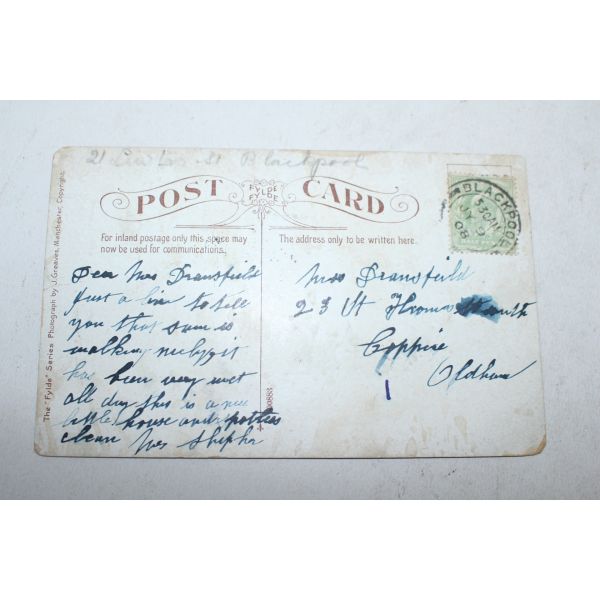 21 St Blackpool
POST CARD
FYLDE
FYLDE
For inland postage only this space may
now be used for communications.
The address only to be written here.
BLACKPOOL
5.30 AM
JY 9
08
Dear Mrs Dransfield
Just a line to tell
you that sam is
walking
has been very wet
all day this is a nice
little house and spotless
clean Mrs
Miss Dransfield
23 St Thomas
Coppice
Oldham
1
The "Fylde" Series Photograph by J. Greaves, Manchester, Copyright.